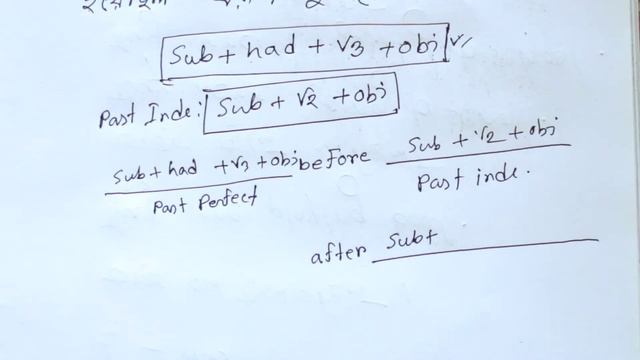 Sub + had + V3 + obj
Past Inde: Sub + V2 + obj
Sub + had + V3 + obj before Sub + V2 + obj
Past Perfect Past inde.
after Sub+